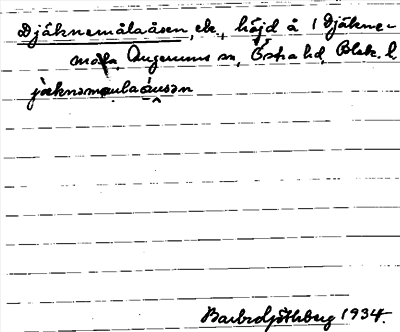 Djäknemålaåsen, ek., höjd å 1 Djäkne-
måla, Augerums sn, Östra hd, Blek. l
jäknəmaulaåusən
Barbro Göthberg 1934.